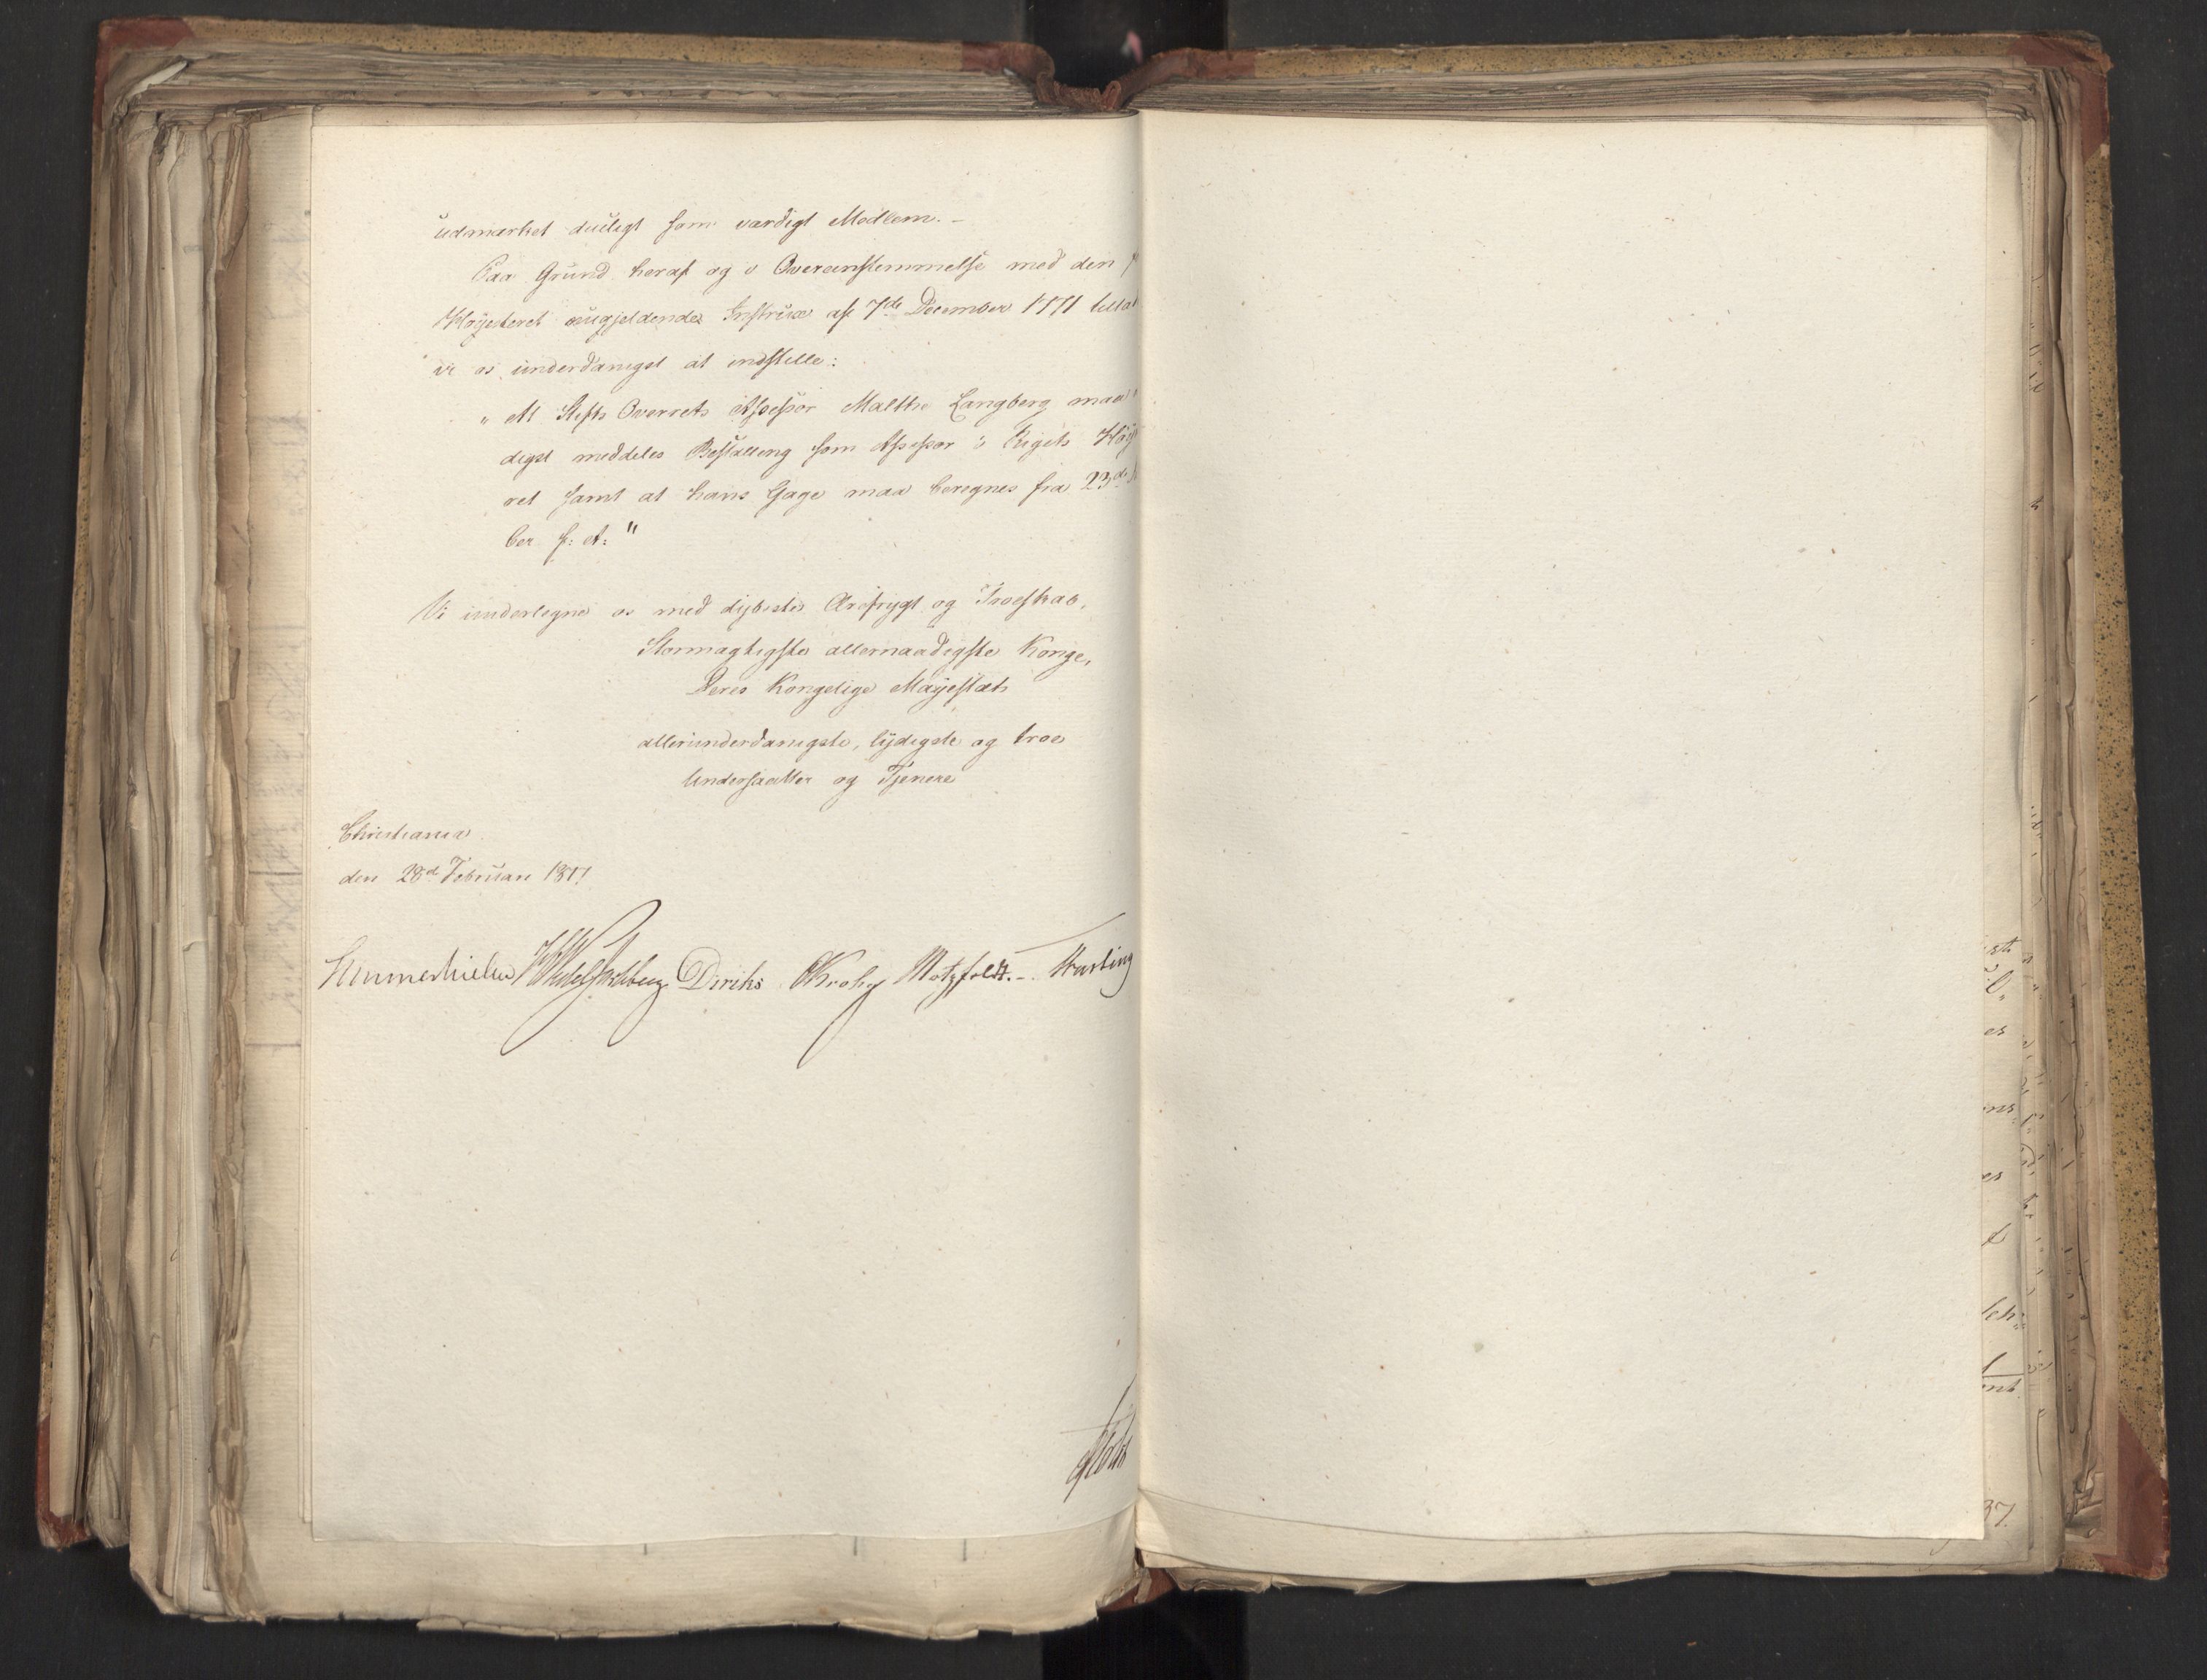 udmærket dueligt som værdigt Medlem. –
Paa Grund heraf og i Overeenstemmelse med den
Høyesteret nugjeldende Instrux af 7de December 1771 tillad
vi os underdanigst at indstille:
„At Stifts Overrets Assessor Malthe Langberg maa
digst meddeles Bestalling som Assessor i Rigets Høy
ret samt at hans Gage maa beregnes fra 23de
ber f: A: "
Vi undertegne os med dybeste Ærefrygt og Troeskab,
Stormægtigste allernaadigste Konge,
Deres Kongelige Mayestæts
allerunderdanigste, lydigste og troe
Undersaatter og Tjenere
Christiania
den 28d Februari 1817
Sommerhielm Wedel Jarlsberg Diriks CKrohg Motzfeldt. –
37.